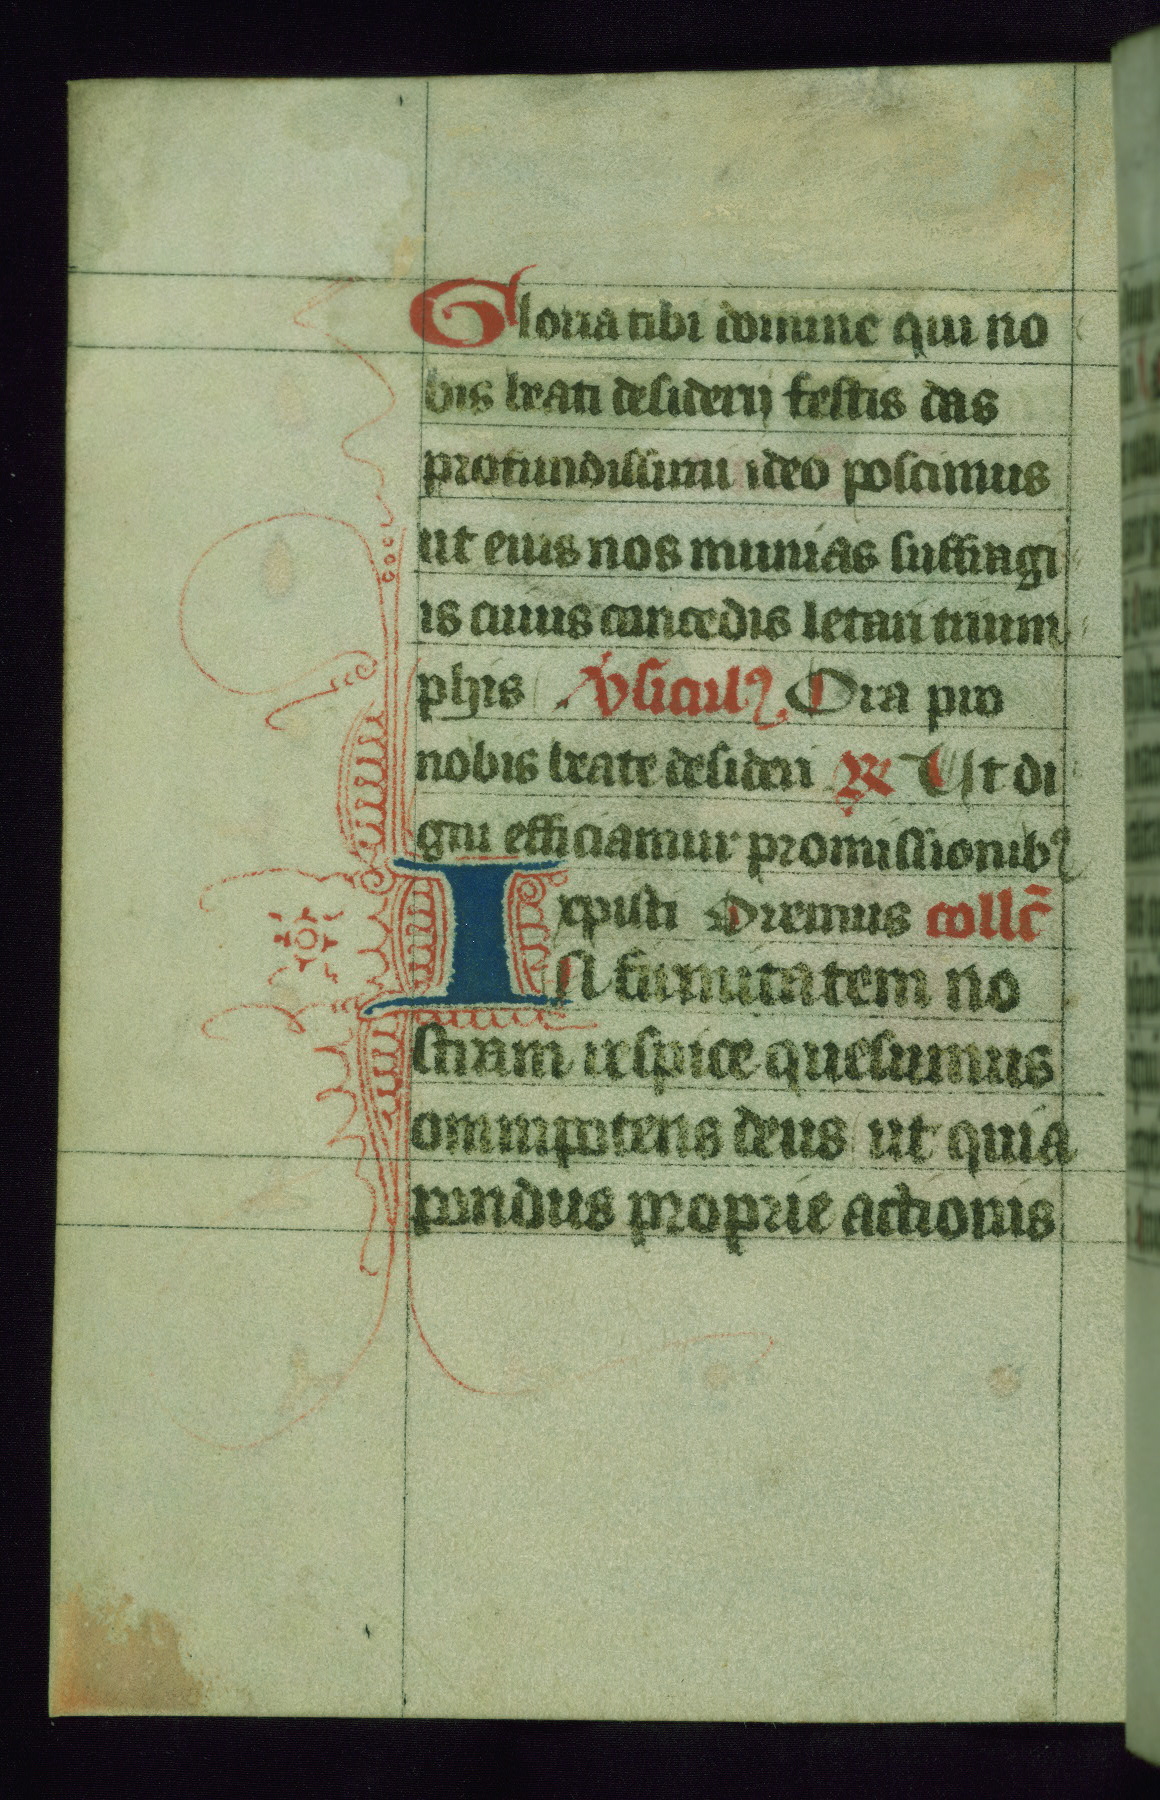 Gloria tibi domine qui no
bis beati desiderij festis das
profundissimi ideo poscimus
ut eius nos munias suffragi
is cuius concedis letari trium
phis v̾siculꝰ Ora pro
nobis beate desideri ℟ Ut di
gni efficiamur promissionibꝰ
xpisti Oremus coll̄c
Infirmitatem no
stram respice quesumus
omnipotens deus ut quia
pondus proprie actionis